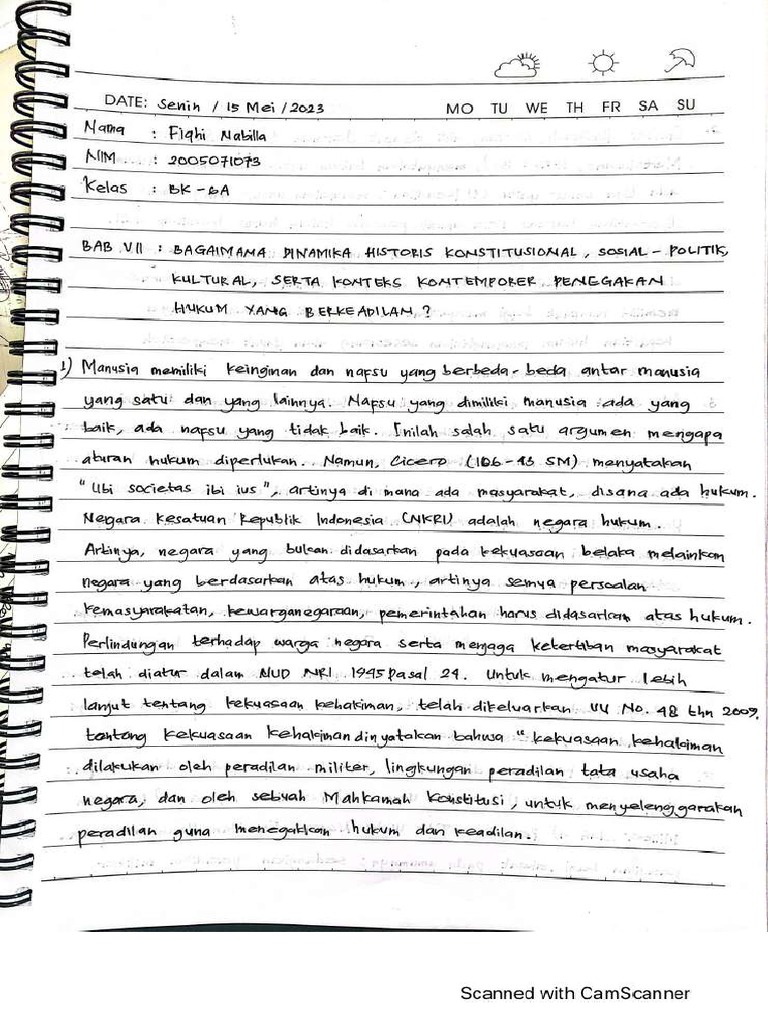 DATE: Senin / 15 Mei / 2023 MO TU WE TH FR SA SU
Nama : Fiqhi Nabilla
NIM : 2005071073
Kelas : BK - 6A
BAB VII : BAGAIMANA DINAMIKA HISTORIS KONSTITUSIONAL, SOSIAL - POLITIK,
KULTURAL, SERTA KONTEKS KONTEMPORER PENEGAKAN
HUKUM YANG BERKEADILAN ?
1) Manusia memiliki keinginan dan nafsu yang berbeda - beda antar manusia
yang satu dan yang lainnya. Nafsu yang dimiliki manusia ada yang
baik, ada nafsu yang tidak baik. Inilah salah satu argumen mengapa
aturan hukum diperlukan. Namun, Cicero (106-43 SM) menyatakan
"Ubi societas ibi ius", artinya di mana ada masyarakat, disana ada hukum.
Negara Kesatuan Republik Indonesia (NKRI) adalah negara hukum.
Artinya, negara yang bukan didasarkan pada kekuasaan belaka melainkan
negara yang berdasarkan atas hukum, artinya semya persoalan
kemasyarakatan, kewarganegaraan, pemerintahan harus didasarkan atas hukum.
Perlindungan terhadap warga negara serta menjaga ketertiban masyarakat
telah diatur dalam NUD NRI 1945 Pasal 24. Untuk mengatur lebih
lanjut tentang kekuasaan kehakiman, telah dikeluarkan UU No. 48 thn 2009.
tentang kekuasaan kehakiman dinyatakan bahwa "kekuasaan kehakiman
dilakukan oleh peradilan militer, lingkungan peradilan tata usaha
negara, dan oleh sebuah Mahkamah Konstitusi, untuk menyelenggarakan
peradilan guna menegakkan hukum dan keadilan.
Scanned with CamScanner